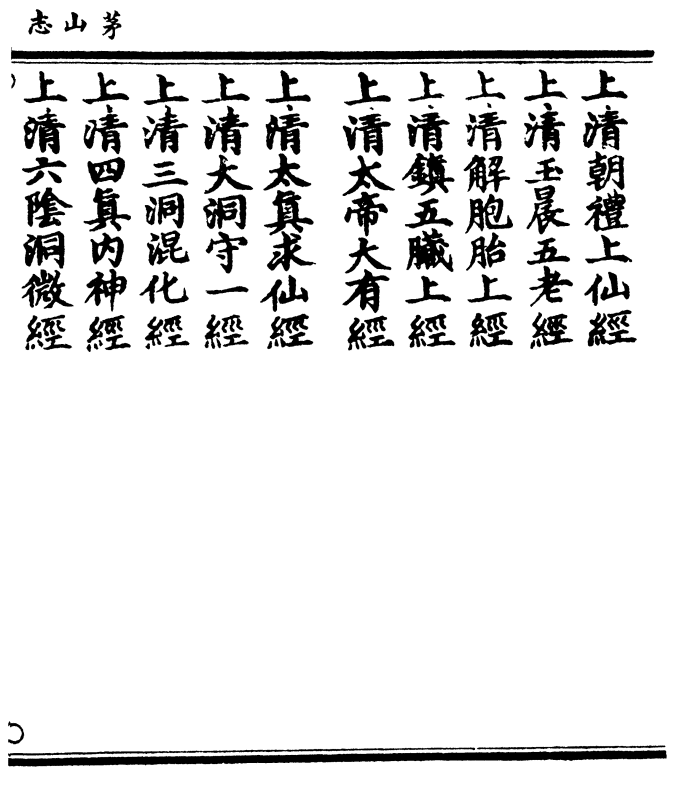 茅山志
上清朝禮上仙經
上清玉晨五老經
上清解胞胎上經
上清鎮五臟上經
上清太帝大有經
上清太眞求仙經
上清大洞守一經
上清三洞混化經
上清四眞内神經
上清六陰洞微經